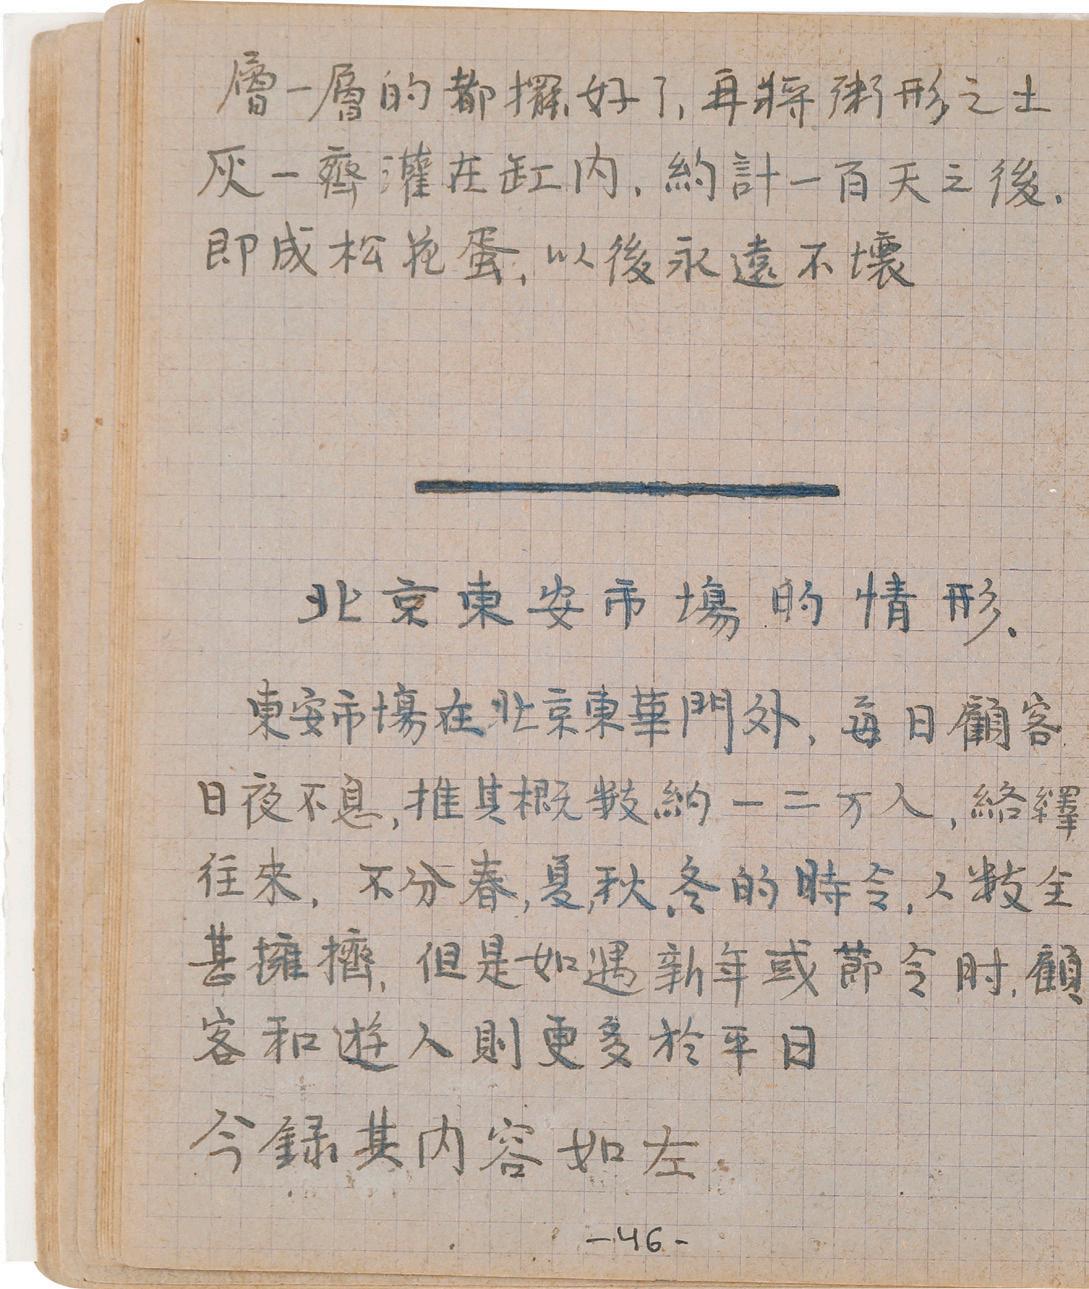 層一層的都擺好了,再將粥形之土
灰一齊灌在缸内,約計一百天之後.
即成松花蛋,以後永遠不壞
北京東安市場的情形.
東安市場在北京東華門外,每日顧客
日夜不息,推其概数約一二万人,絡繹
往來,不分春,夏,秋,冬的時令,人数全
甚擁擠,但是如遇新年或節令时,顧
客和遊人則更多於平日
今録其内容如左.
-46-